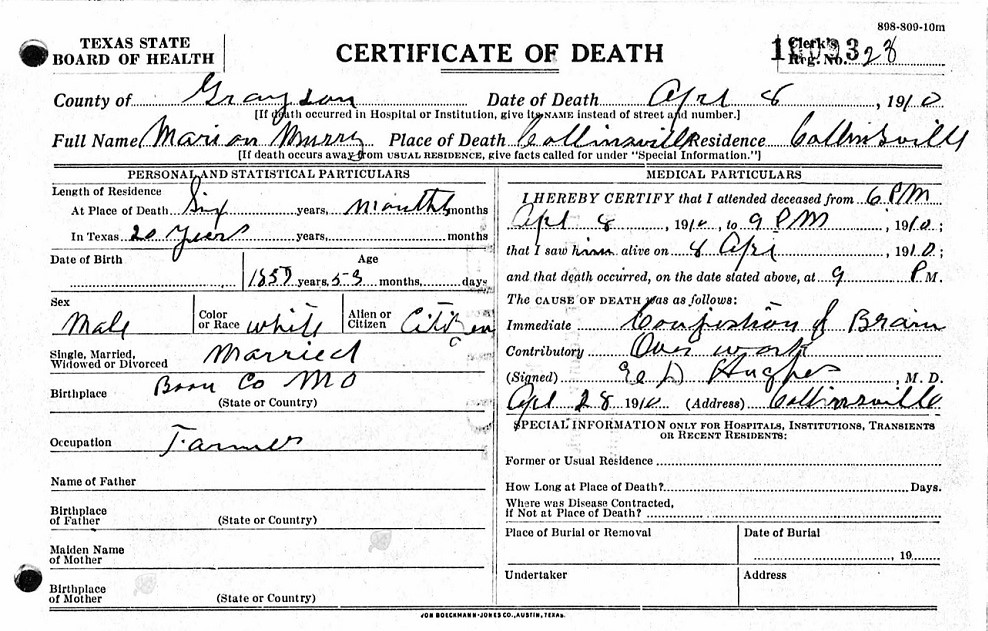 898-809-10m
TEXAS STATE
BOARD OF HEALTH
CERTIFICATE OF DEATH
Clerk's
Reg. No. 28
County of Grayson Date of Death Apr 8, 1910
[If death occurred in Hospital or Institution, give its NAME instead of street and number.]
Full Name Marion Murry Place of Death Collinsville Residence Collinsville
[If death occurs away from USUAL RESIDENCE, give facts called for under "Special Information."]
PERSONAL AND STATISTICAL PARTICULARS
Length of Residence
At Place of Death Six years, Months months
In Texas 20 Years years, months
Date of Birth Age
1857 years, 53 months, days
Sex Male Color or Race white Alien or Citizen Citizen
Single, Married,
Widowed or Divorced Married
Birthplace Boon Co MO
(State or Country)
Occupation Farmer
Name of Father
Birthplace
of Father (State or Country)
Maiden Name
of Mother
Birthplace
of Mother (State or Country)
MEDICAL PARTICULARS
I HEREBY CERTIFY that I attended deceased from 6 PM
Apl 8, 1910, to 9 PM, 1910;
that I saw him alive on 8 Apr, 1910;
and that death occurred, on the date stated above, at 9 P M.
The CAUSE OF DEATH was as follows:
Immediate Conjestion of Brain
Contributory Over work
(Signed) Hughes, M. D.
Apl 28 1910 (Address) Collinsville
SPECIAL INFORMATION ONLY FOR HOSPITALS, INSTITUTIONS, TRANSIENTS
OR RECENT RESIDENTS:
Former or Usual Residence
How Long at Place of Death? Days.
Where was Disease Contracted,
if Not at Place of Death?
Place of Burial or Removal Date of Burial
, 19
Undertaker Address
VON BOECKMANN-JONES CO., AUSTIN, TEXAS.